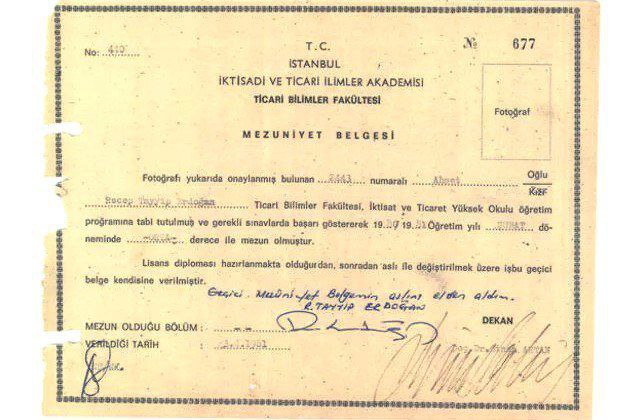 T. C.
No: 440 № 677
İSTANBUL
İKTİSADİ VE TİCARİ İLİMLER AKADEMİSİ
TİCARİ BİLİMLER FAKÜLTESİ
Fotoğraf
MEZUNİYET BELGESİ
Fotoğrafı yukarıda onaylanmış bulunan 2443 numaralı Ahmet Oğlu
Kızı
Recep Tayyip Erdoğan Ticari Bilimler Fakültesi, İktisat ve Ticaret Yüksek Okulu öğretim
programına tabi tutulmuş ve gerekli sınavlarda başarı göstererek 1980/1981 Öğretim yılı ŞUBAT dö-
neminde derece ile mezun olmuştur.
Lisans diploması hazırlanmakta olduğurdan, sonradan aslı ile değiştirilmek üzere işbu geçici
belge kendisine verilmiştir.
Geçici Mezüniyet Belgemin aslını elden aldım.
R. TAYYİP ERDOĞAN
MEZUN OLDUĞU BÖLÜM : -- DEKAN
VERİLDİĞİ TARİH : 1981